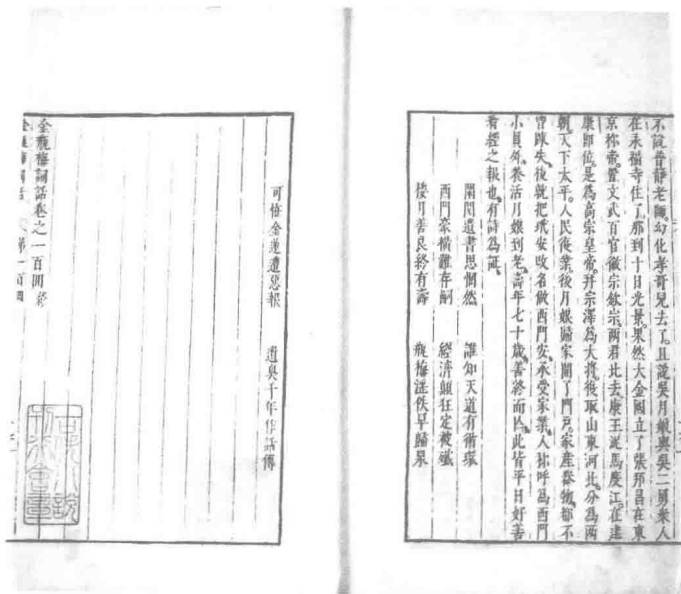 不說普靜老師幻化孝哥兒去了且說吳月娘與吳二舅衆人
在永福寺住了那到十日光景果然大金國立了張邦昌在東
京称帝置文武百官徽宗欽宗両君北去康王泥馬度江在建
康即位是為高宗皇帝拜宗澤為大將復取山東河北分為两
朝天下太平人民復業後月娘歸家開了門户家産器物都不
曾踈失後就把玳安改名做西門安承受家業人称呼為西門
小員外养活月娘到老壽年七十歲善終而亡此皆平日好善
看經之報也有詩為証
閑閱遺書思惘然　誰知天道有循環
西門豪横難存嗣　經濟顛狂定被殱
楼月善良終有壽　瓶梅淫佚早歸泉
可怪金蓮遭惡報　遺臭千年作話傳
金瓶梅詞話卷之一百囬終